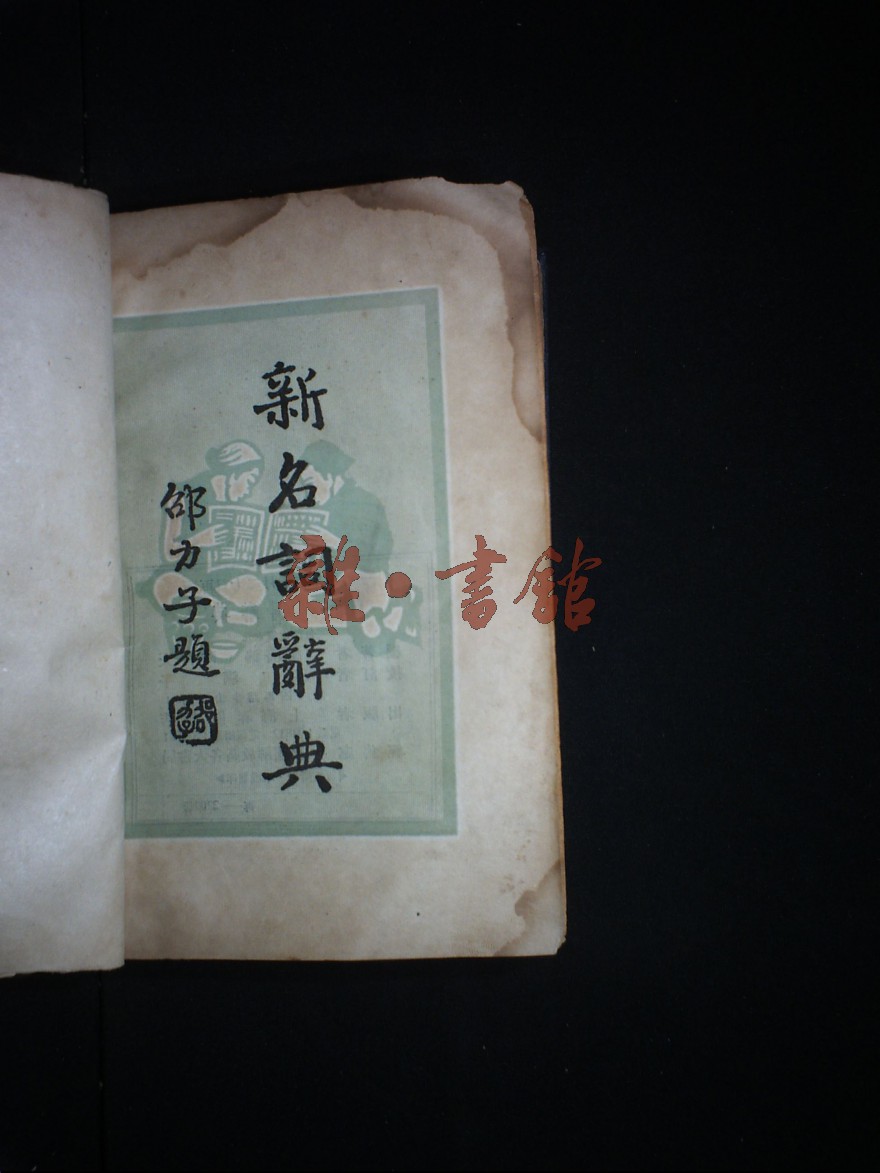 新名詞辭典
邵力子題
雜·書館